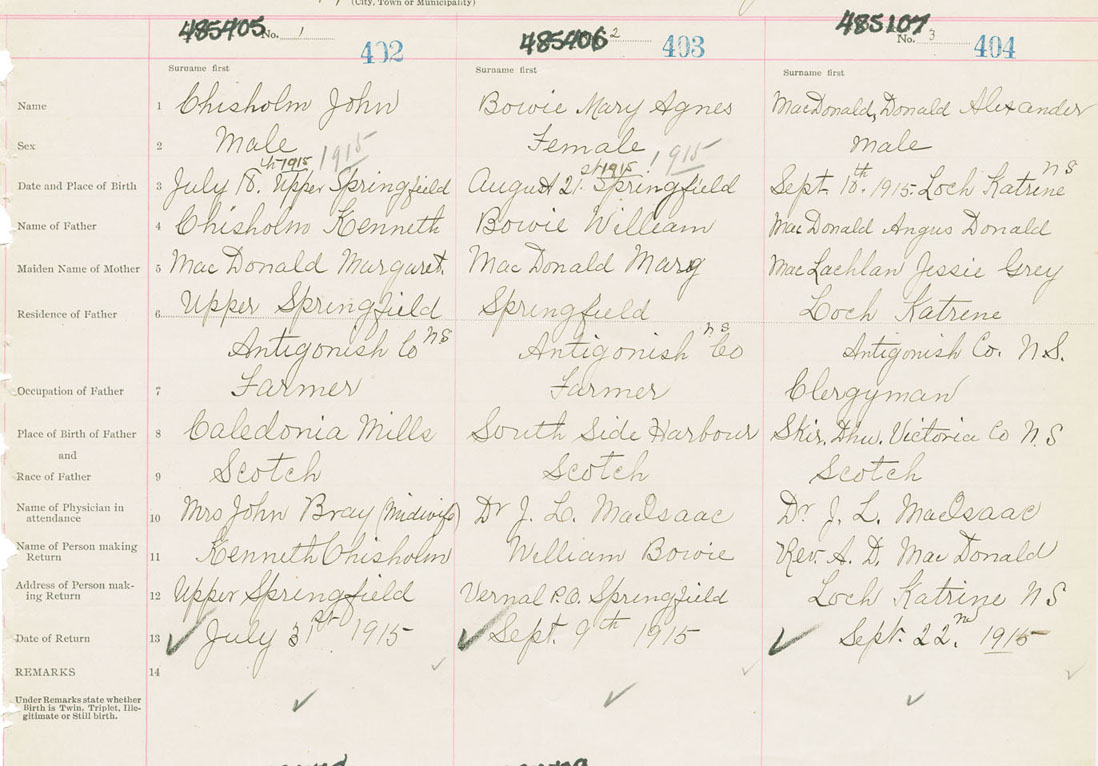 (City, Town or Municipality)
485405 No. 1 402
485406 2 403
485107 No. 3 404
Surname first Surname first Surname first
Name 1 Chisholm John Bowie Mary Agnes MacDonald, Donald Alexander
Sex 2 Male Female Male
1915 1915
Date and Place of Birth 3 July 18. th 1915 Upper Springfield August 21. st 1915 Springfield Sept. 18th. 1915. Loch Katrine N S
Name of Father 4 Chisholm Kenneth Bowie William Mac Donald Angus Donald
Maiden Name of Mother 5 Mac Donald Margaret. Mac Donald Mary Mac Lachlan Jessie Grey
Residence of Father 6 Upper Springfield Springfield Loch Katrine
Antigonish Co N S Antigonish Co N S Antigonish Co. N.S.
Occupation of Father 7 Farmer Farmer Clergyman
Place of Birth of Father 8 Caledonia Mills South Side Harbour Skir. Dhu. Victoria Co N.S
and
Race of Father 9 Scotch Scotch Scotch
Name of Physician in
attendance 10 Mrs John Bray (Midwife) Dr J. L. MacIsaac Dr. J. L. MacIsaac
Name of Person making
Return 11 Kenneth Chisholm William Bowie Rev. A. D. Mac Donald
Address of Person mak-
ing Return 12 Upper Springfield Vernal P.O. Springfield Loch Katrine N S
Date of Return 13 July 31st 1915 Sept. 9th 1915 Sept. 22.nd 1915
REMARKS 14
Under Remarks state whether
Birth is Twin, Triplet, Ille-
gitimate or Still birth.